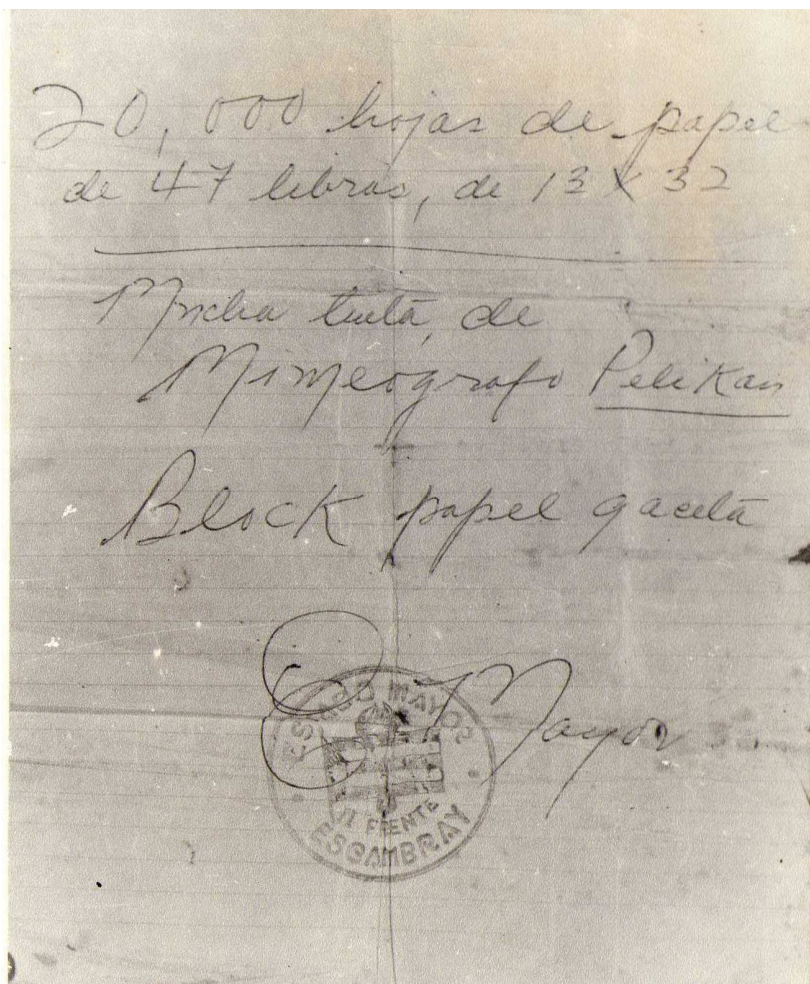 20,000 hojas de papel
de 47 libras, de 13 X 32
Mucha tinta, de
Mimeografo Pelikan
Block papel gaceta
E. Mayor
ESTADO MAYOR
II FRENTE
ESCAMBRAY